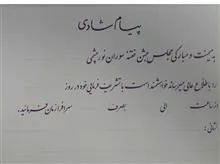 پیام شادی
به میمنت و مبارکی مجلس جشن ختنه سوران نورچشمی
را به اطلاع عالی میرساند خواهشمند است با تشریف فرمایی خود در روز
از ساعت الی بصرف سرافرازمان فرمائید.
نشانی: